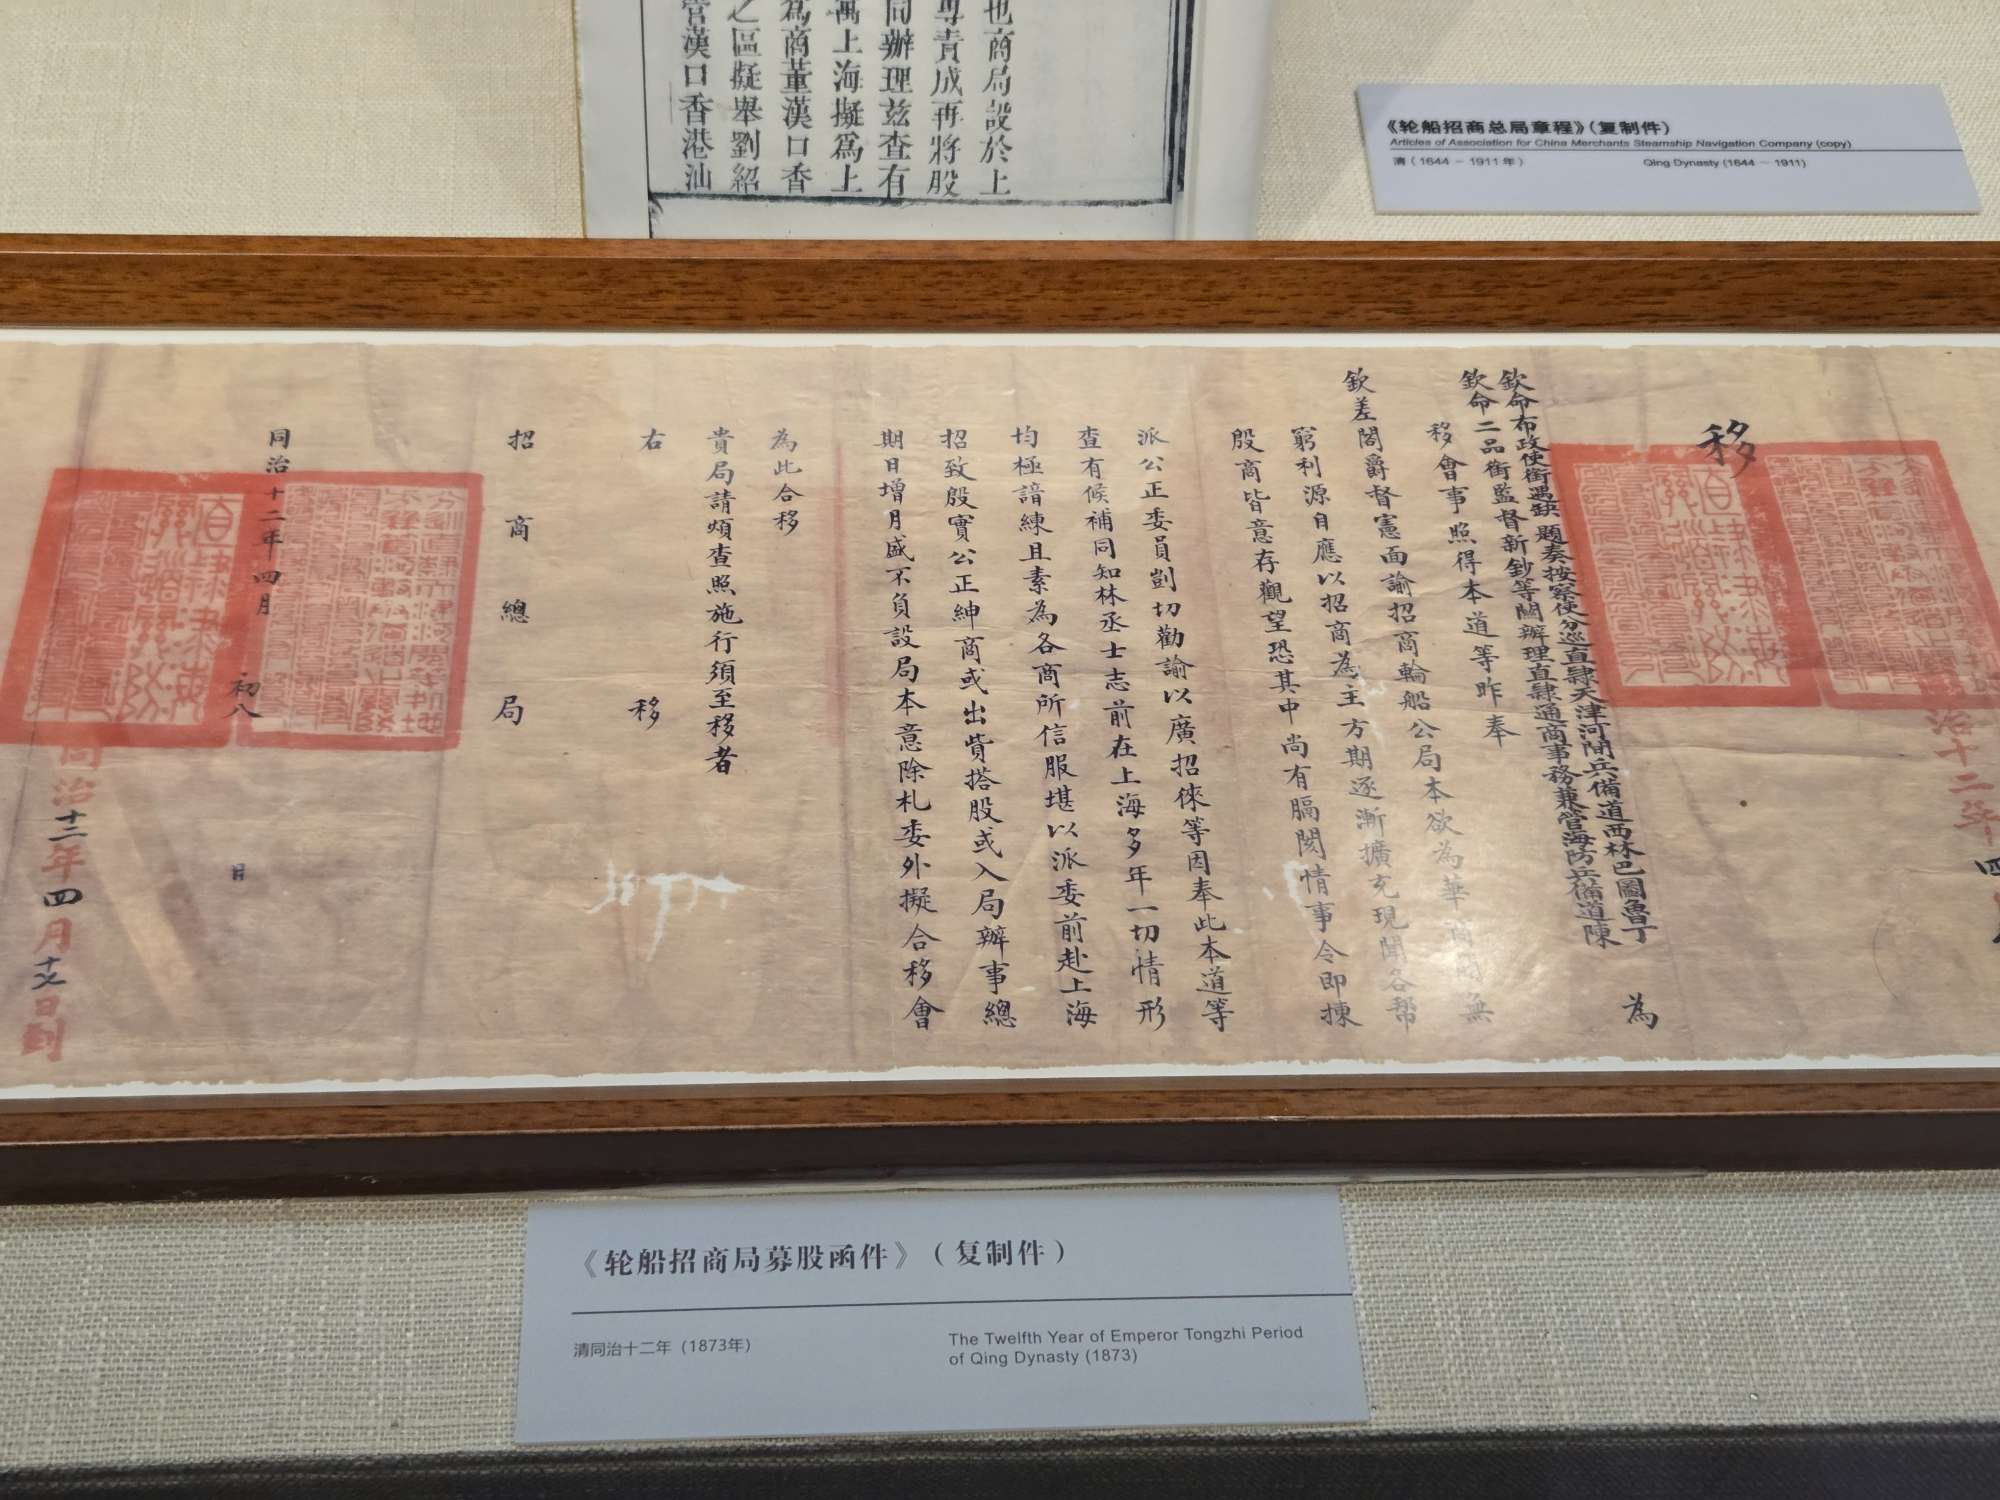 也商局設於上
專責成再將股
同辦理茲查有
寓上海擬爲上
爲商董漢口香
之區擬舉劉紹
管漢口香港汕
《轮船招商总局章程》（复制件）
Articles of Association for China Merchants Steamship Navigation Company (copy)
清（1644 - 1911年）
Qing Dynasty (1644 - 1911)
治十二年四
移
欽命布政使銜遇缺題奏按察使分巡直隸天津河間兵備道西林巴圖魯丁
欽命二品銜監督新鈔等關辦理直隸通商事務兼管海防兵備道陳
為
移會事照得本道等昨奉
欽差閣爵督憲面諭招商輪船公局本欲為華商 無
窮利源自應以招商為主方期逐漸擴充現聞各幫
殷商皆意存觀望恐其中尚有膈閡情事令即揀
派公正委員剴切勸諭以廣招徠等因奉此本道等
查有候補同知林丞士志前在上海多年一切情形
均極諳練且素為各商所信服堪以派委前赴上海
招致殷實公正紳商或出貲搭股或入局辦事總
期日增月盛不負設局本意除札委外擬合移會
為此合移
貴局請煩查照施行須至移者
右移
招商總局
同治十二年四月初八日
同治十二年四月十七日到
《轮船招商局募股函件》（复制件）
清同治十二年（1873年）
The Twelfth Year of Emperor Tongzhi Period
of Qing Dynasty (1873)